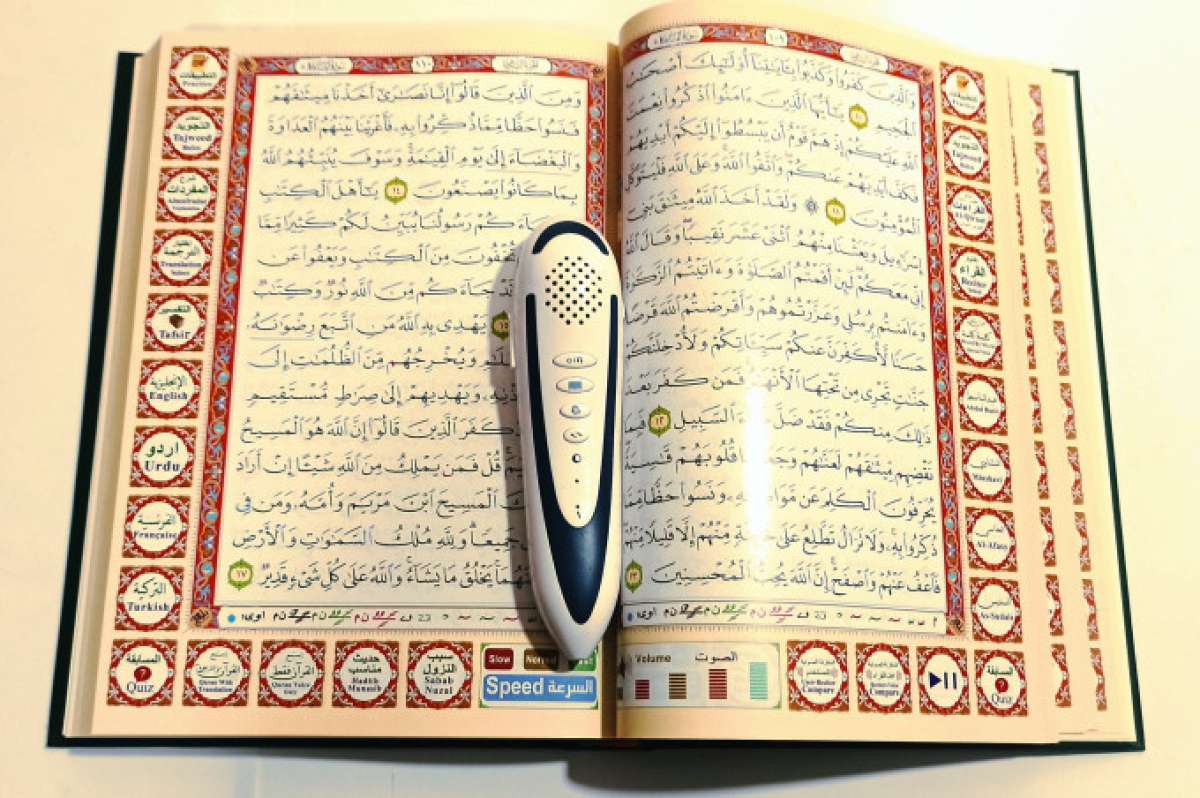 ١٠٩
وَالَّذِينَ كَفَرُوا۟ وَكَذَّبُوا۟ بِـَٔايَـٰتِنَآ أُو۟لَـٰٓئِكَ أَصْحَـٰبُ
ٱلْجَحِيمِ ١٠ يَـٰٓأَيُّهَا ٱلَّذِينَ ءَامَنُوا۟ ٱذْكُرُوا۟ نِعْمَتَ
ٱللَّهِ عَلَيْكُمْ إِذْ هَمَّ قَوْمٌ أَن يَبْسُطُوٓا۟ إِلَيْكُمْ أَيْدِيَهُمْ
فَكَفَّ أَيْدِيَهُمْ عَنكُمْ وَٱتَّقُوا۟ ٱللَّهَ وَعَلَى ٱللَّهِ فَلْيَتَوَكَّلِ
ٱلْمُؤْمِنُونَ ١١ ۞ وَلَقَدْ أَخَذَ ٱللَّهُ مِيثَـٰقَ بَنِىٓ
إِسْرَٰٓءِيلَ وَبَعَثْنَا مِنْهُمُ ٱثْنَىْ عَشَرَ نَقِيبًا وَقَالَ ٱللَّهُ
إِنِّى مَعَكُمْ لَئِنْ أَقَمْتُمُ ٱلصَّلَوٰةَ وَءَاتَيْتُمُ ٱلزَّكَوٰةَ
وَءَامَنتُم بِرُسُلِى وَعَزَّرْتُمُوهُمْ وَأَقْرَضْتُمُ ٱللَّهَ قَرْضًا
حَسَنًا لَّأُكَفِّرَنَّ عَنكُمْ سَيِّـَٔاتِكُمْ وَلَأُدْخِلَنَّكُمْ
جَنَّـٰتٍ تَجْرِى مِن تَحْتِهَا ٱلْأَنْهَـٰرُ فَمَن كَفَرَ بَعْدَ
ذَٰلِكَ مِنكُمْ فَقَدْ ضَلَّ سَوَآءَ ٱلسَّبِيلِ ١٢ فَبِمَا
نَقْضِهِم مِّيثَـٰقَهُمْ لَعَنَّـٰهُمْ وَجَعَلْنَا قُلُوبَهُمْ قَـٰسِيَةً
يُحَرِّفُونَ ٱلْكَلِمَ عَن مَّوَاضِعِهِۦ وَنَسُوا۟ حَظًّا مِّمَّا
ذُكِّرُوا۟ بِهِۦ وَلَا تَزَالُ تَطَّلِعُ عَلَىٰ خَآئِنَةٍ مِّنْهُمْ إِلَّا قَلِيلًا مِّنْهُمْ
فَٱعْفُ عَنْهُمْ وَٱصْفَحْ إِنَّ ٱللَّهَ يُحِبُّ ٱلْمُحْسِنِينَ ١٣
التجويد
القراء
Reciter
Minshawi
Al-Afasy
As-Sudais
Volume الصوت
Compare
Compare
المسابقة
?
Quiz
١١٠
وَمِنَ ٱلَّذِينَ قَالُوٓا۟ إِنَّا نَصَـٰرَىٰٓ أَخَذْنَا مِيثَـٰقَهُمْ
فَنَسُوا۟ حَظًّا مِّمَّا ذُكِّرُوا۟ بِهِۦ فَأَغْرَيْنَا بَيْنَهُمُ ٱلْعَدَاوَةَ
وَٱلْبَغْضَآءَ إِلَىٰ يَوْمِ ٱلْقِيَـٰمَةِ وَسَوْفَ يُنَبِّئُهُمُ ٱللَّهُ
بِمَا كَانُوا۟ يَصْنَعُونَ ١٤ يَـٰٓأَهْلَ ٱلْكِتَـٰبِ
جَآءَكُمْ رَسُولُنَا يُبَيِّنُ لَكُمْ كَثِيرًا مِّمَّا
تُخْفُونَ مِنَ ٱلْكِتَـٰبِ وَيَعْفُوا۟ عَن
جَآءَكُم مِّنَ ٱللَّهِ نُورٌ وَكِتَـٰبٌ
١٥ يَهْدِى بِهِ ٱللَّهُ مَنِ ٱتَّبَعَ رِضْوَٰنَهُۥ
وَيُخْرِجُهُم مِّنَ ٱلظُّلُمَـٰتِ إِلَى
وَيَهْدِيهِمْ إِلَىٰ صِرَٰطٍ مُّسْتَقِيمٍ
كَفَرَ ٱلَّذِينَ قَالُوٓا۟ إِنَّ ٱللَّهَ هُوَ ٱلْمَسِيحُ
قُلْ فَمَن يَمْلِكُ مِنَ ٱللَّهِ شَيْـًٔا إِنْ أَرَادَ
ٱلْمَسِيحَ ٱبْنَ مَرْيَمَ وَأُمَّهُۥ وَمَن فِى
جَمِيعًا وَلِلَّهِ مُلْكُ ٱلسَّمَـٰوَٰتِ وَٱلْأَرْضِ
يَخْلُقُ مَا يَشَآءُ وَٱللَّهُ عَلَىٰ كُلِّ شَىْءٍ قَدِيرٌ ١٧
التطبيقات
Practice
التجويد
Tajweed
Rules
المفردات
الترجمة
Translation
التفسير
Tafsir
الإنجليزية
English
اردو
Urdu
الفرنسية
Française
التركية
Turkish
المسابقة
?
Quiz
Quran With
Translation
القرآن فقط
Quran Voice
Only
حديث
مناسب
Hadith
Munasib
سبب
النزول
Sabab
Nuzul
Slow
Speed السرعة